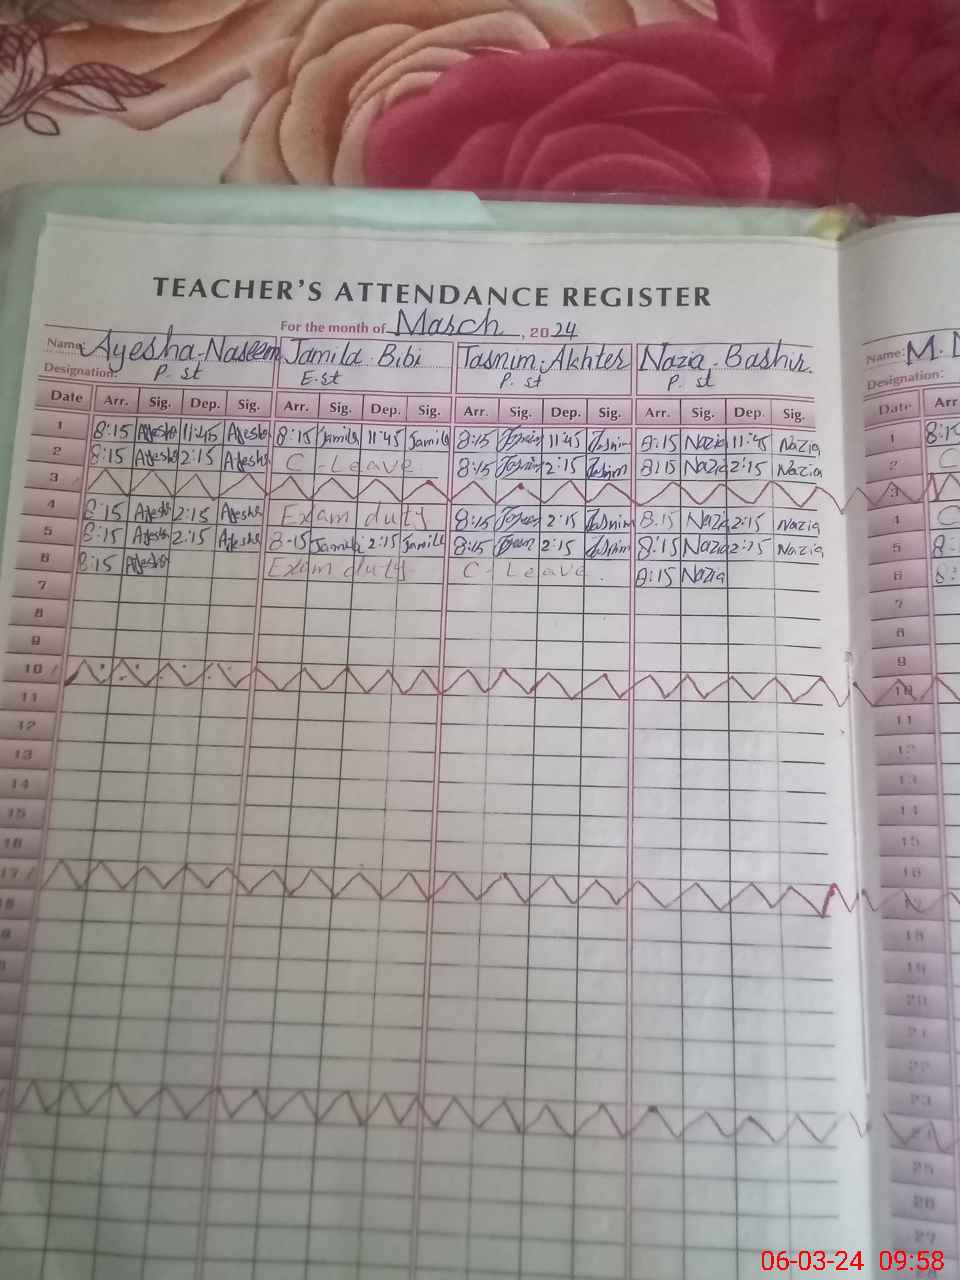 TEACHER'S ATTENDANCE REGISTER
For the month of March, 2024
Name: Ayesha Naseem Jamila Bibi Tasnim Akhter Nazia Bashir. Name: M.
Designation: P. st E. st P. st P. st Designation:
Date Arr. Sig. Dep. Sig. Arr. Sig. Dep. Sig. Arr. Sig. Dep. Sig. Arr. Sig. Dep. Sig. Date Arr
1 8:15 Ayesha 11:45 Ayesha 8:15 Jamila 11:45 Jamila 8:15 Tasnim 11:45 Tasnim 8:15 Nazia 11:45 Nazia 1 8:15
2 8:15 Ayesha 2:15 Ayesha C-Leave 8:15 Tasnim 2:15 Tasnim 8:15 Nazia 2:15 Nazia 2 C
3 3
4 8:15 Ayesha 2:15 Ayesha Exam duty 8:15 Tasnim 2:15 Tasnim 8:15 Nazia 2:15 Nazia 4 C
5 8:15 Ayesha 2:15 Ayesha 8-15 Jamila 2:15 Jamila 8:15 Tasnim 2:15 Tasnim 8:15 Nazia 2:15 Nazia 5 8:
6 8:15 Ayesha Exam duty C-Leave. 8:15 Nazia 6 8:
7 7
8 8
9 9
10 10
11 11
12 12
13 13
14 14
15 15
16 16
17 17
18 18
19 19
20
21
22
23
24
25
26
27
06-03-24 09:58